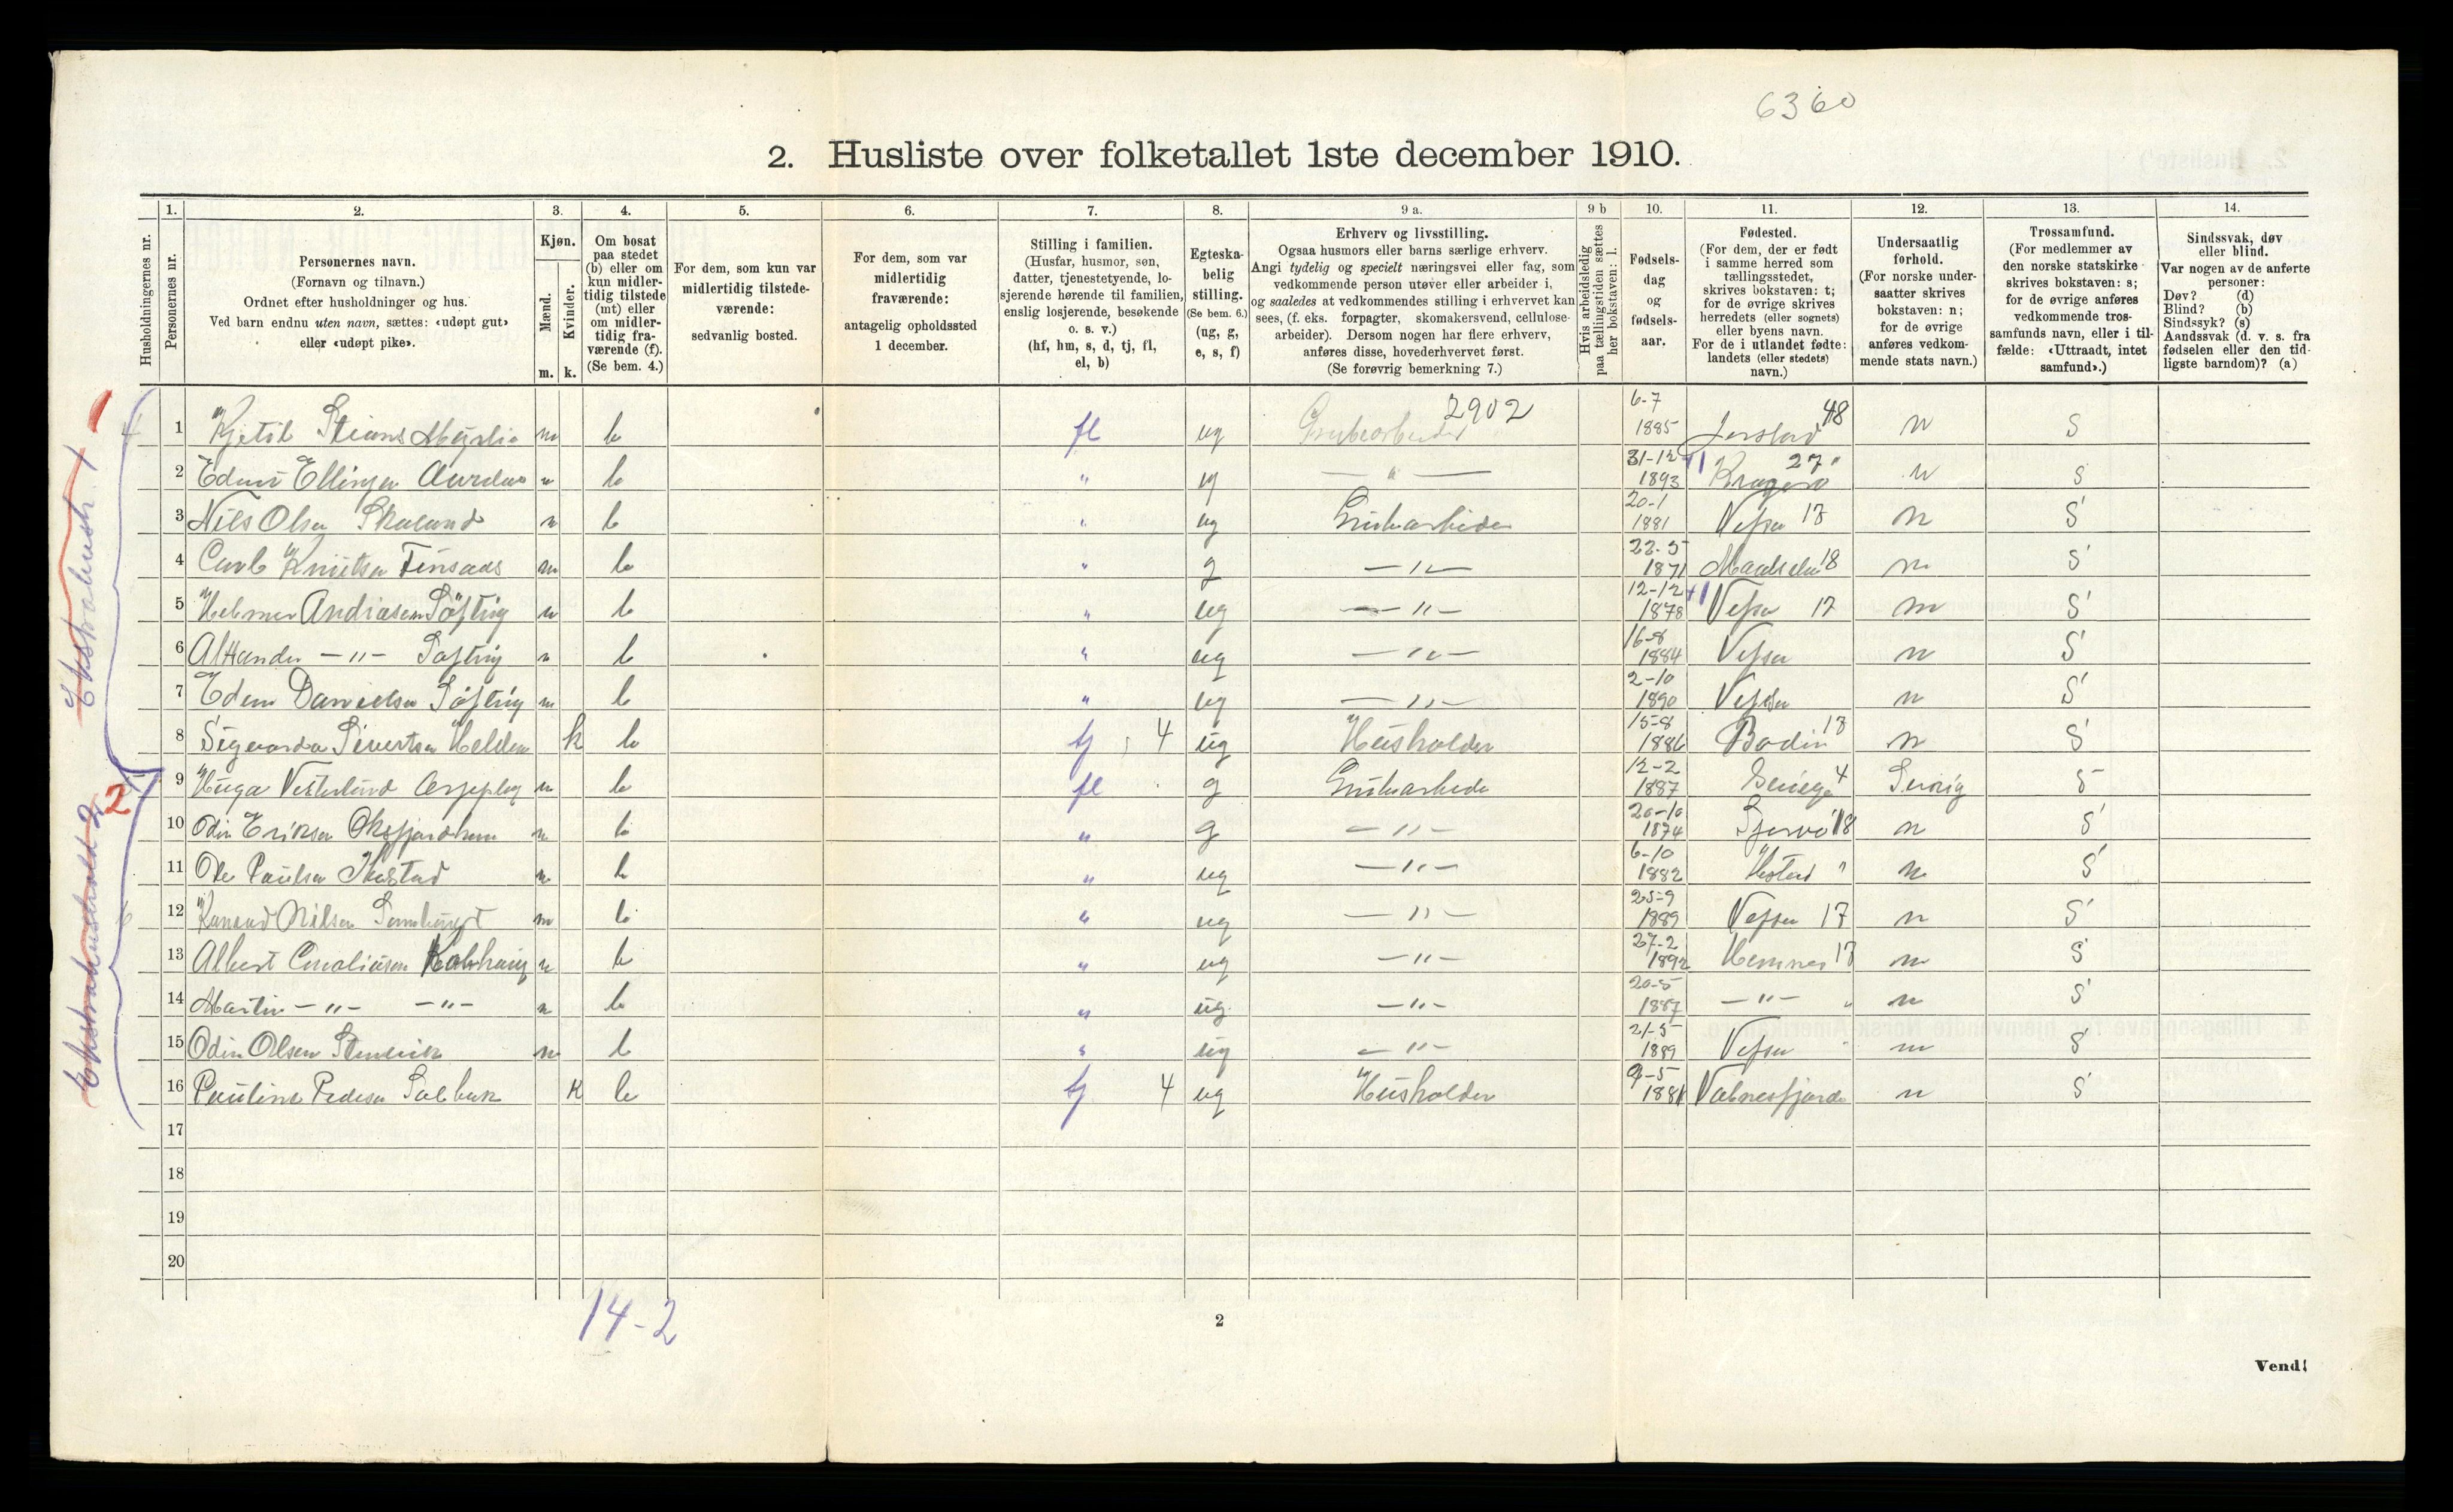 6360
2. Husliste over folketallet 1ste december 1910.
Husholdningernes nr.
1.
Personernes nr.
2.
Personernes navn.
(Fornavn og tilnavn.)
Ordnet efter husholdninger og hus.
Ved barn endnu uten navn, sættes: «udøpt gut»
eller «udøpt pike».
3.
Kjøn.
Mænd.
Kvinder.
m. k.
4.
Om bosat
paa stedet
(b) eller om
kun midler-
tidig tilstede
(mt) eller
om midler-
tidig fra-
værende (f).
(Se bem. 4.)
5.
For dem, som kun var
midlertidig tilstede-
værende:
sedvanlig bosted.
6.
For dem, som var
midlertidig
fraværende:
antagelig opholdssted
1 december.
7.
Stilling i familien.
(Husfar, husmor, søn,
datter, tjenestetyende, lo-
sjerende hørende til familien,
enslig losjerende, besøkende
o. s. v.)
(hf, hm, s, d, tj, fl,
el, b)
8.
Egteska-
belig
stilling.
(Se bem. 6.)
(ug, g,
e, s, f)
9 a.
Erhverv og livsstilling.
Ogsaa husmors eller barns særlige erhverv.
Angi tydelig og specielt næringsvei eller fag, som
vedkommende person utøver eller arbeider i,
og saaledes at vedkommendes stilling i erhvervet kan
sees, (f. eks. forpagter, skomakersvend, cellulose-
arbeider). Dersom nogen har flere erhverv,
anføres disse, hovederhvervet først.
(Se forøvrig bemerkning 7.)
9 b
Hvis arbeidsledig
paa tællingstiden sættes
her bokstaven: l.
10.
Fødsels-
dag
og
fødsels-
aar.
11.
Fødested.
(For dem, der er født
i samme herred som
tællingsstedet,
skrives bokstaven: t;
for de øvrige skrives
herredets (eller sognets)
eller byens navn.
For de i utlandet fødte:
landets (eller stedets)
navn.)
12.
Undersaatlig
forhold.
(For norske under-
saatter skrives
bokstaven: n;
for de øvrige
anføres vedkom-
mende stats navn.)
13.
Trossamfund.
(For medlemmer av
den norske statskirke
skrives bokstaven: s;
for de øvrige anføres
vedkommende tros-
samfunds navn, eller i til-
fælde: «Uttraadt, intet
samfund».)
14.
Sindssvak, døv
eller blind.
Var nogen av de anførte
personer:
Døv? (d)
Blind? (b)
Sindssyk? (s)
Aandssvak (d. v. s. fra
fødselen eller den tid-
ligste barndom)? (a)
Ekstrahush. 1
1 Kjetil m b fl ug Grubearbeider 2902 6-7 1885 48 n s
2 Ellingsen m b " ug — " — 31-12 1893 Kragerø 27 n s
3 Nils Olsen Skaland m b " ug Grubearbeider 20-1 1881 Vefsn 17 n s
4 Carl Knutsen m b " g — " — 22-5 1871 Maalselv 18 n s
5 Helmer Andreasen Søfting m b " ug — " — 12-12 1878 Vefsn 17 n s
6 — " — Søfting m b " ug — " — 16-8 1884 Vefsn n s
7 Danielsen Søfting m b " ug — " — 2-10 1890 Vefsn n s
8 Sivertsen k b tj 4 ug Husholder 15-8 1886 Bodin 17 n s
Ekstrahushold 2 2
9 Vesterlund m b fl g Grubearbeider 12-2 1887 4 s
10 Odin Eriksen m b " g — " — 20-10 1874 18 n s
11 Ole Paulsen m b " ug — " — 6-10 1882 " n s
12 Konrad Nilsen m b " ug — " — 25-9 1889 Vefsn 17 n s
13 Albert m b " ug — " — 27-2 1892 Hemnes 17 n s
14 Martin — " — — " — m b " ug — " — 20-5 1887 — " — " n s
15 Odin Olsen m b " ug — " — 21-5 1889 Vefsn " n s
16 Pauline k b tj 4 ug Husholder 9-5 1881 Valnesfjord n s
17
18
19
20
14-2
2
Vend!